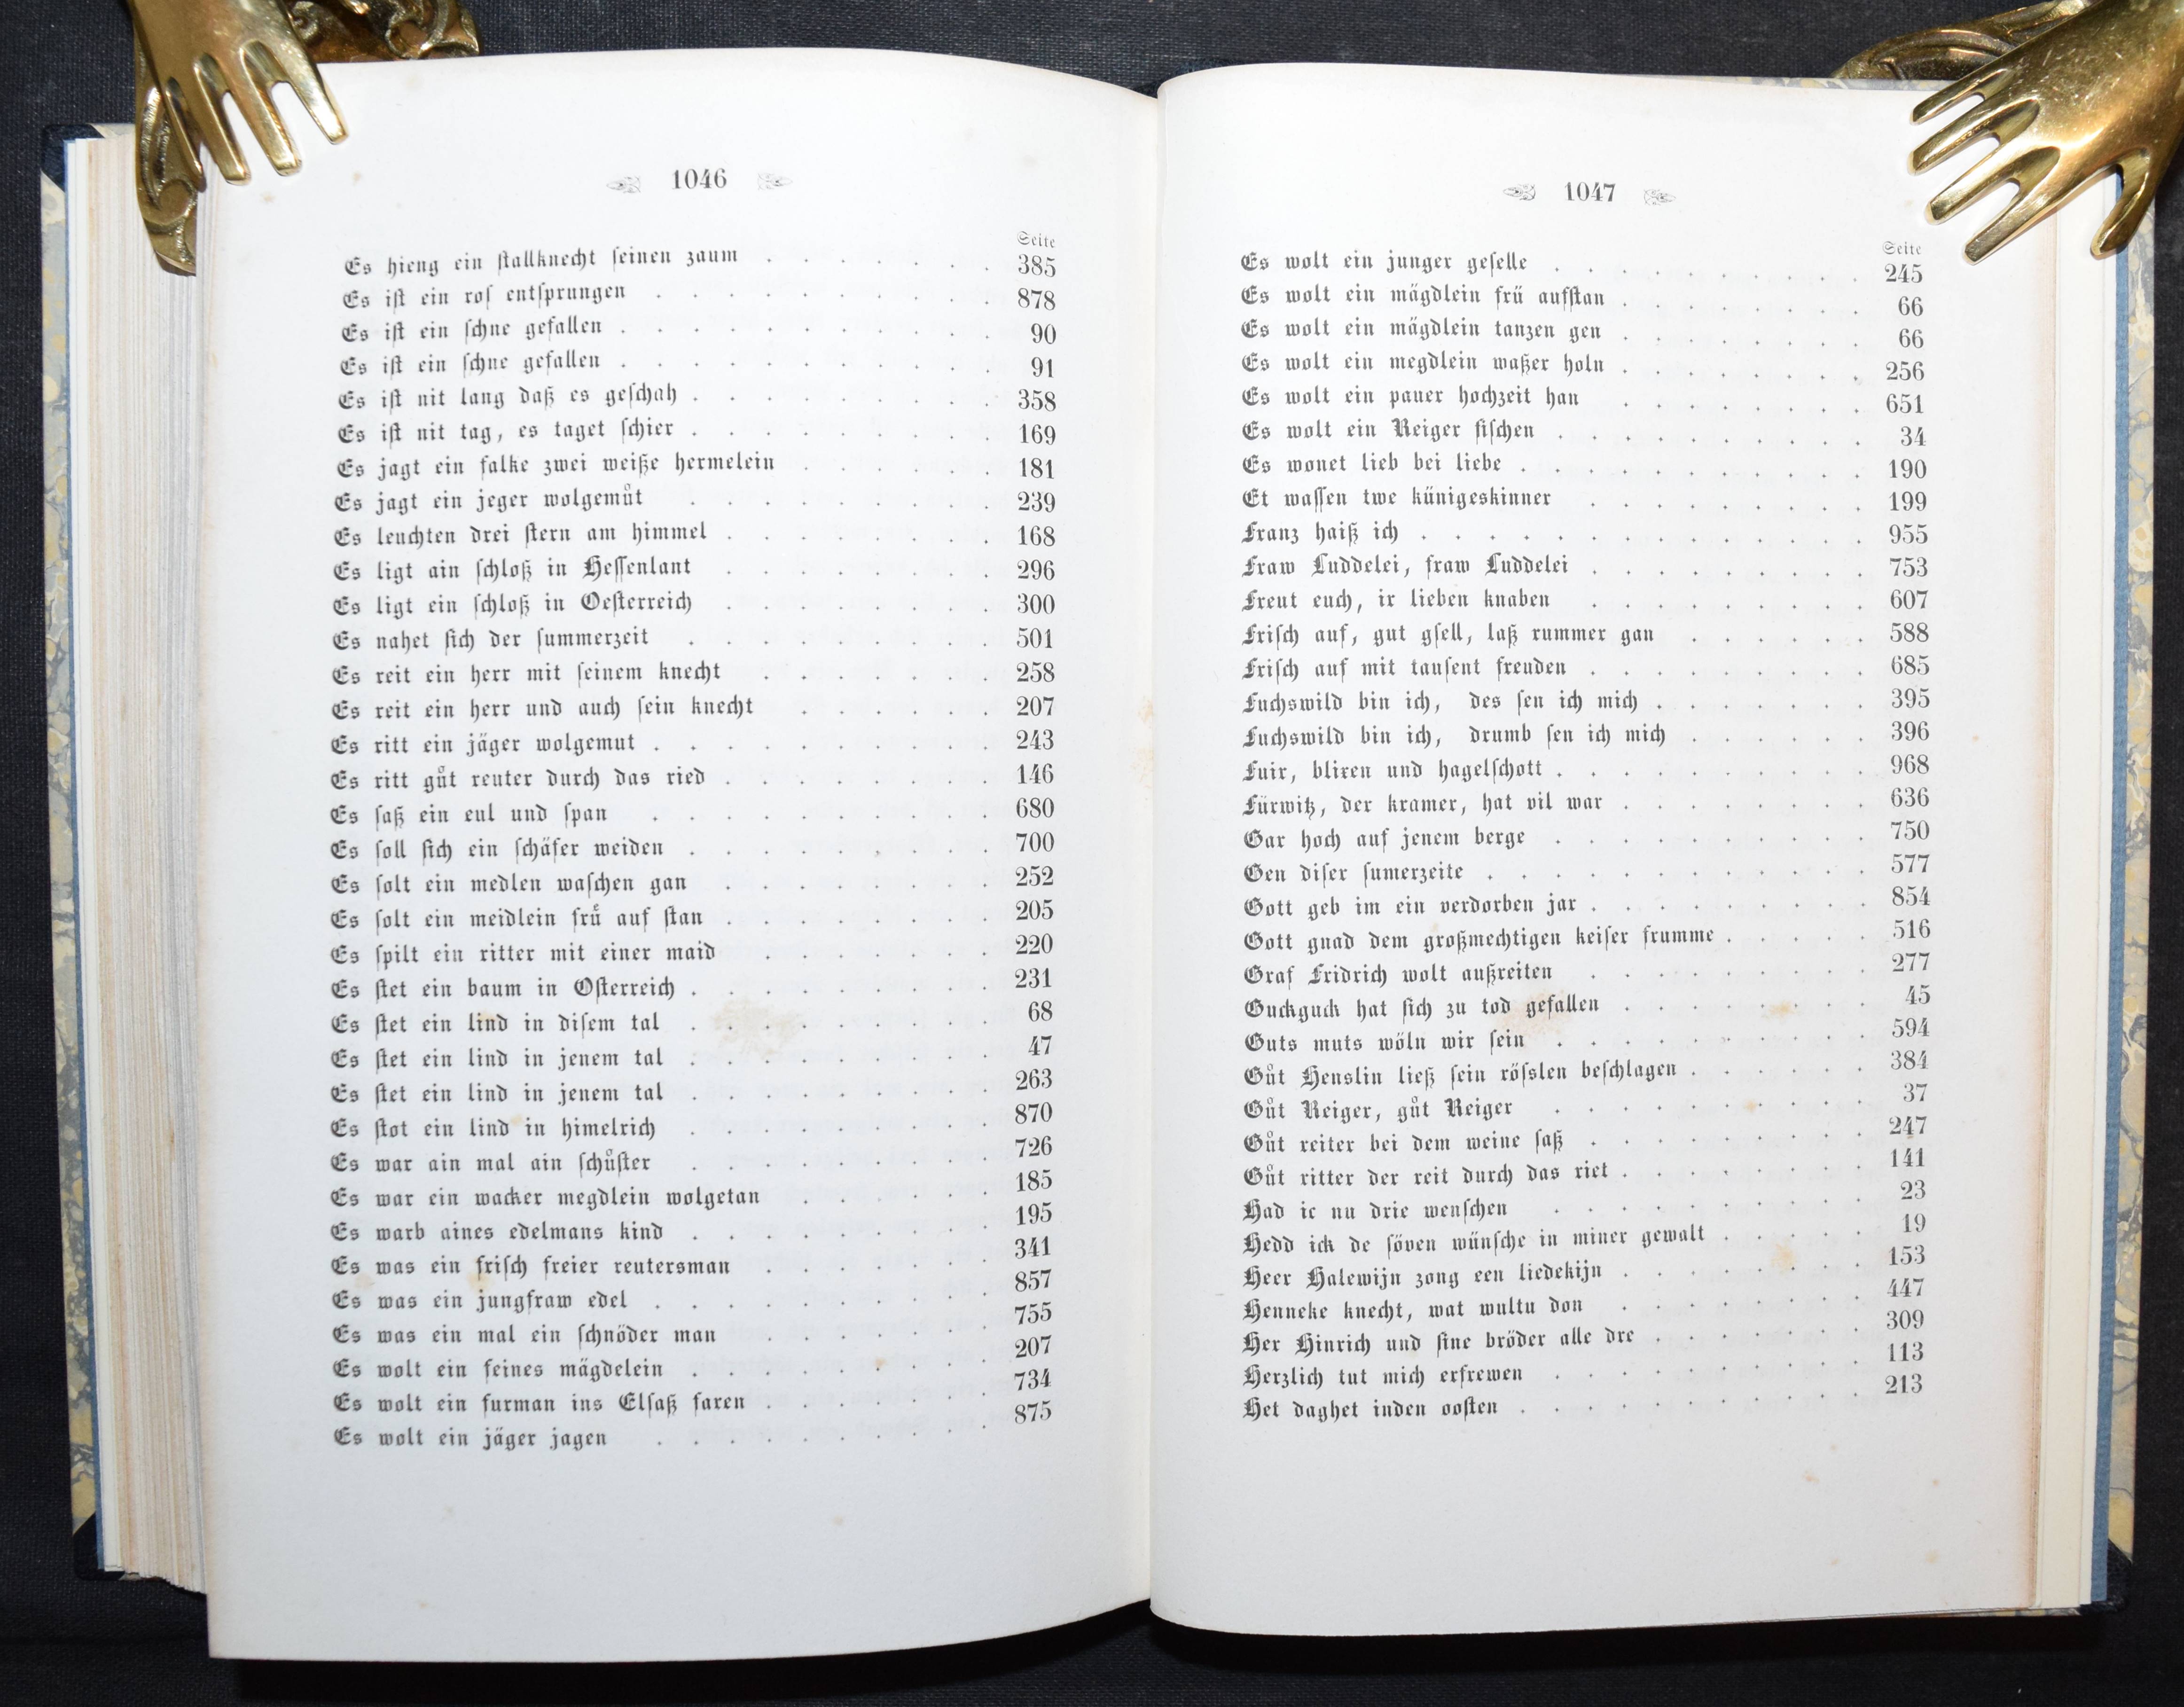 1046
Seite
Es hieng ein ſtallknecht ſeinen zaum . . . . . . . 385
Es iſt ein roſ entſprungen . . . . . . . . . . 878
Es iſt ein ſchne gefallen . . . . . . . . . . . 90
Es iſt ein ſchne gefallen . . . . . . . . . . . 91
Es iſt nit lang daß es geſchah . . . . . . . . . 358
Es iſt nit tag, es taget ſchier . . . . . . . . . 169
Es jagt ein falke zwei weiße hermelein . . . . . . 181
Es jagt ein jeger wolgemůt . . . . . . . . . 239
Es leuchten drei ſtern am himmel . . . . . . . . 168
Es ligt ain ſchloß in Heſſenlant . . . . . . . . 296
Es ligt ein ſchloß in Oeſterreich . . . . . . . . 300
Es nahet ſich der ſummerzeit . . . . . . . . . 501
Es reit ein herr mit ſeinem knecht . . . . . . . 258
Es reit ein herr und auch ſein knecht . . . . . . 207
Es ritt ein jäger wolgemut . . . . . . . . . . 243
Es ritt gůt reuter durch das ried . . . . . . . . 146
Es ſaß ein eul und ſpan . . . . . . . . . . 680
Es ſoll ſich ein ſchäfer weiden . . . . . . . . . 700
Es ſolt ein medlen waſchen gan . . . . . . . . 252
Es ſolt ein meidlein frů auf ſtan . . . . . . . . 205
Es ſpilt ein ritter mit einer maid . . . . . . . 220
Es ſtet ein baum in Oſterreich . . . . . . . . . 231
Es ſtet ein lind in diſem tal . . . . . . . . . 68
Es ſtet ein lind in jenem tal . . . . . . . . . 47
Es ſtet ein lind in jenem tal . . . . . . . . . 263
Es ſtot ein lind in himelrich . . . . . . . . . 870
Es war ain mal ain ſchůſter . . . . . . . . . 726
Es war ein wacker megdlein wolgetan . . . . . . 185
Es warb aines edelmans kind . . . . . . . . . 195
Es was ein friſch freier reutersman . . . . . . . 341
Es was ein jungfraw edel . . . . . . . . . . 857
Es was ein mal ein ſchnöder man . . . . . . . 755
Es wolt ein feines mägdelein . . . . . . . . . 207
Es wolt ein furman ins Elſaß faren . . . . . . . 734
Es wolt ein jäger jagen . . . . . . . . . . 875
1047
Seite
Es wolt ein junger geſelle . . . . . . . . . . 245
Es wolt ein mägdlein frü aufſtan . . . . . . . . 66
Es wolt ein mägdlein tanzen gen . . . . . . . . 66
Es wolt ein megdlein waßer holn . . . . . . . . 256
Es wolt ein pauer hochzeit han . . . . . . . . 651
Es wolt ein Reiger fiſchen . . . . . . . . . . 34
Es wonet lieb bei liebe . . . . . . . . . . . 190
Et waſſen twe künigeskinner . . . . . . . . . 199
Franz haiß ich . . . . . . . . . . . . . . 955
Fraw Luddelei, fraw Luddelei . . . . . . . . . 753
Freut euch, ir lieben knaben . . . . . . . . . 607
Friſch auf, gut gſell, laß rummer gan . . . . . . 588
Friſch auf mit tauſent freuden . . . . . . . . . 685
Fuchswild bin ich, des ſen ich mich . . . . . . . 395
Fuchswild bin ich, drumb ſen ich mich . . . . . . 396
Fuir, blixen und hagelſchott . . . . . . . . . . 968
Fürwitz, der kramer, hat vil war . . . . . . . . 636
Gar hoch auf jenem berge . . . . . . . . . . 750
Gen diſer ſumerzeite . . . . . . . . . . . . 577
Gott geb im ein verdorben jar . . . . . . . . . 854
Gott gnad dem großmechtigen keiſer frumme . . . . . 516
Graf Fridrich wolt außreiten . . . . . . . . . 277
Guckguck hat ſich zu tod gefallen . . . . . . . . 45
Guts muts wöln wir ſein . . . . . . . . . . 594
Gůt Henslin ließ ſein röſslen beſchlagen . . . . . . 384
Gůt Reiger, gůt Reiger . . . . . . . . . . 37
Gůt reiter bei dem weine ſaß . . . . . . . . . 247
Gůt ritter der reit durch das riet . . . . . . . . 141
Had ic nu drie wenſchen . . . . . . . . . . 23
Hedd ick de ſöven wünſche in miner gewalt . . . . . 19
Heer Halewijn zong een liedekijn . . . . . . . . 153
Henneke knecht, wat wultu don . . . . . . . . 447
Her Hinrich und ſine bröder alle dre . . . . . . . 309
Herzlich tut mich erfrewen . . . . . . . . . . 113
Het daghet inden ooſten . . . . . . . . . . . 213